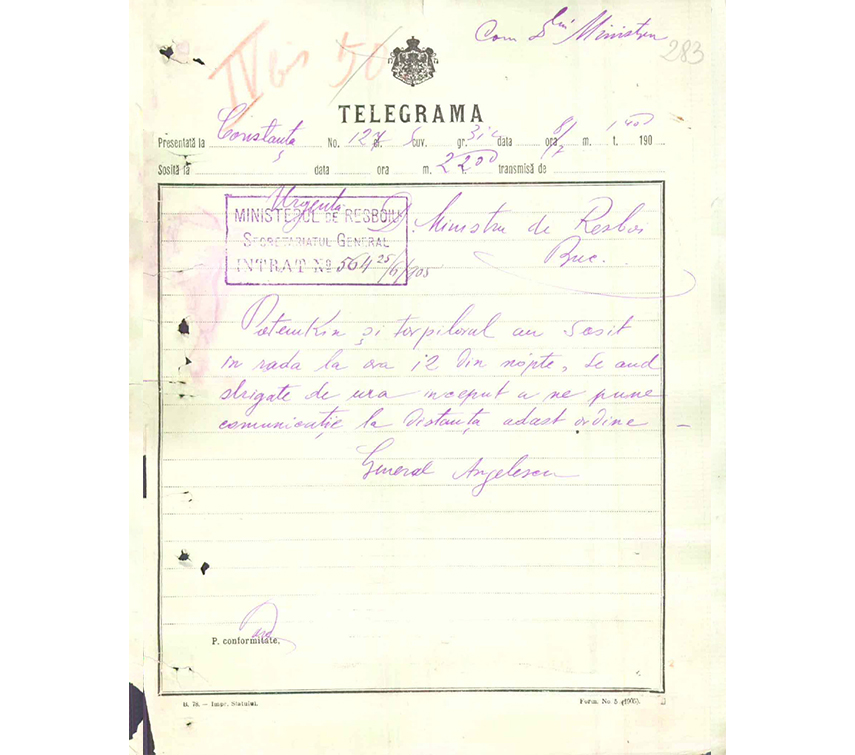 Com Dlui Ministru
283
IV bis 50
TELEGRAMA
Presentată la Constanța No. 127 cuv. gr. 31 data ora m. t. 190
Sosită la data ora m. 2 200 transmisă de
Urgentă
MINISTERUL DE RESBOIU
SECRETARIATUL GENERAL
INTRAT No 564 25/6/905
D. Ministru de Resboi
Buc.
Potemkin și torpilorul au sosit
in rada la ora 12 din nopte, se aud
strigate de ura inceput a ne pune
comunicație la distanța adast ordine –
General Angelescu
P. conformitate.
D. 78. — Impr. Statului.
Form. No 5 (1905).